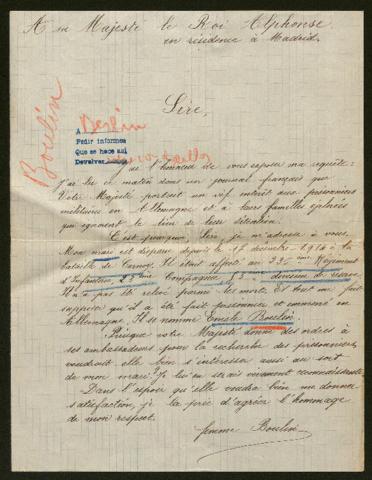 A sa Majesté le Roi Alphonse
en résidence à Madrid.
Boulin
Sire,
A Berlin
Pedir informes
Que se hace así
Devolver
J'ai l'honneur de vous exposer ma requête :
J'ai lu ce matin dans un journal français que
Votre Majesté portait un vif intérêt aux prisonniers
militaires en Allemagne et à leurs familles éplorées
qui ignorent le lieu de leur situation.
C'est pourquoi, Sire, je m'adresse à vous.
Mon mari est disparu depuis le 17 décembre 1914 à la
bataille de Carnoy. Il était affecté au Régiment
d'Infanterie, Compagnie, division de réserve.
Il n'a pas été relevé parmi les morts. Et tout me fait
supposer qu'il a été fait prisonnier et emmené en
Allemagne. Il se nomme Emile Boulin.
Puisque votre Majesté donne des ordres à
ses ambassadeurs pour la recherche des prisonniers,
voudrait elle bien s'intéresser aussi au sort
de mon mari? Je lui en serai vivement reconnaissante.
Dans l'espoir qu'elle voudra bien me donner
satisfaction, je la prie d'agréer l'hommage
de mon respect.
femme Boulin